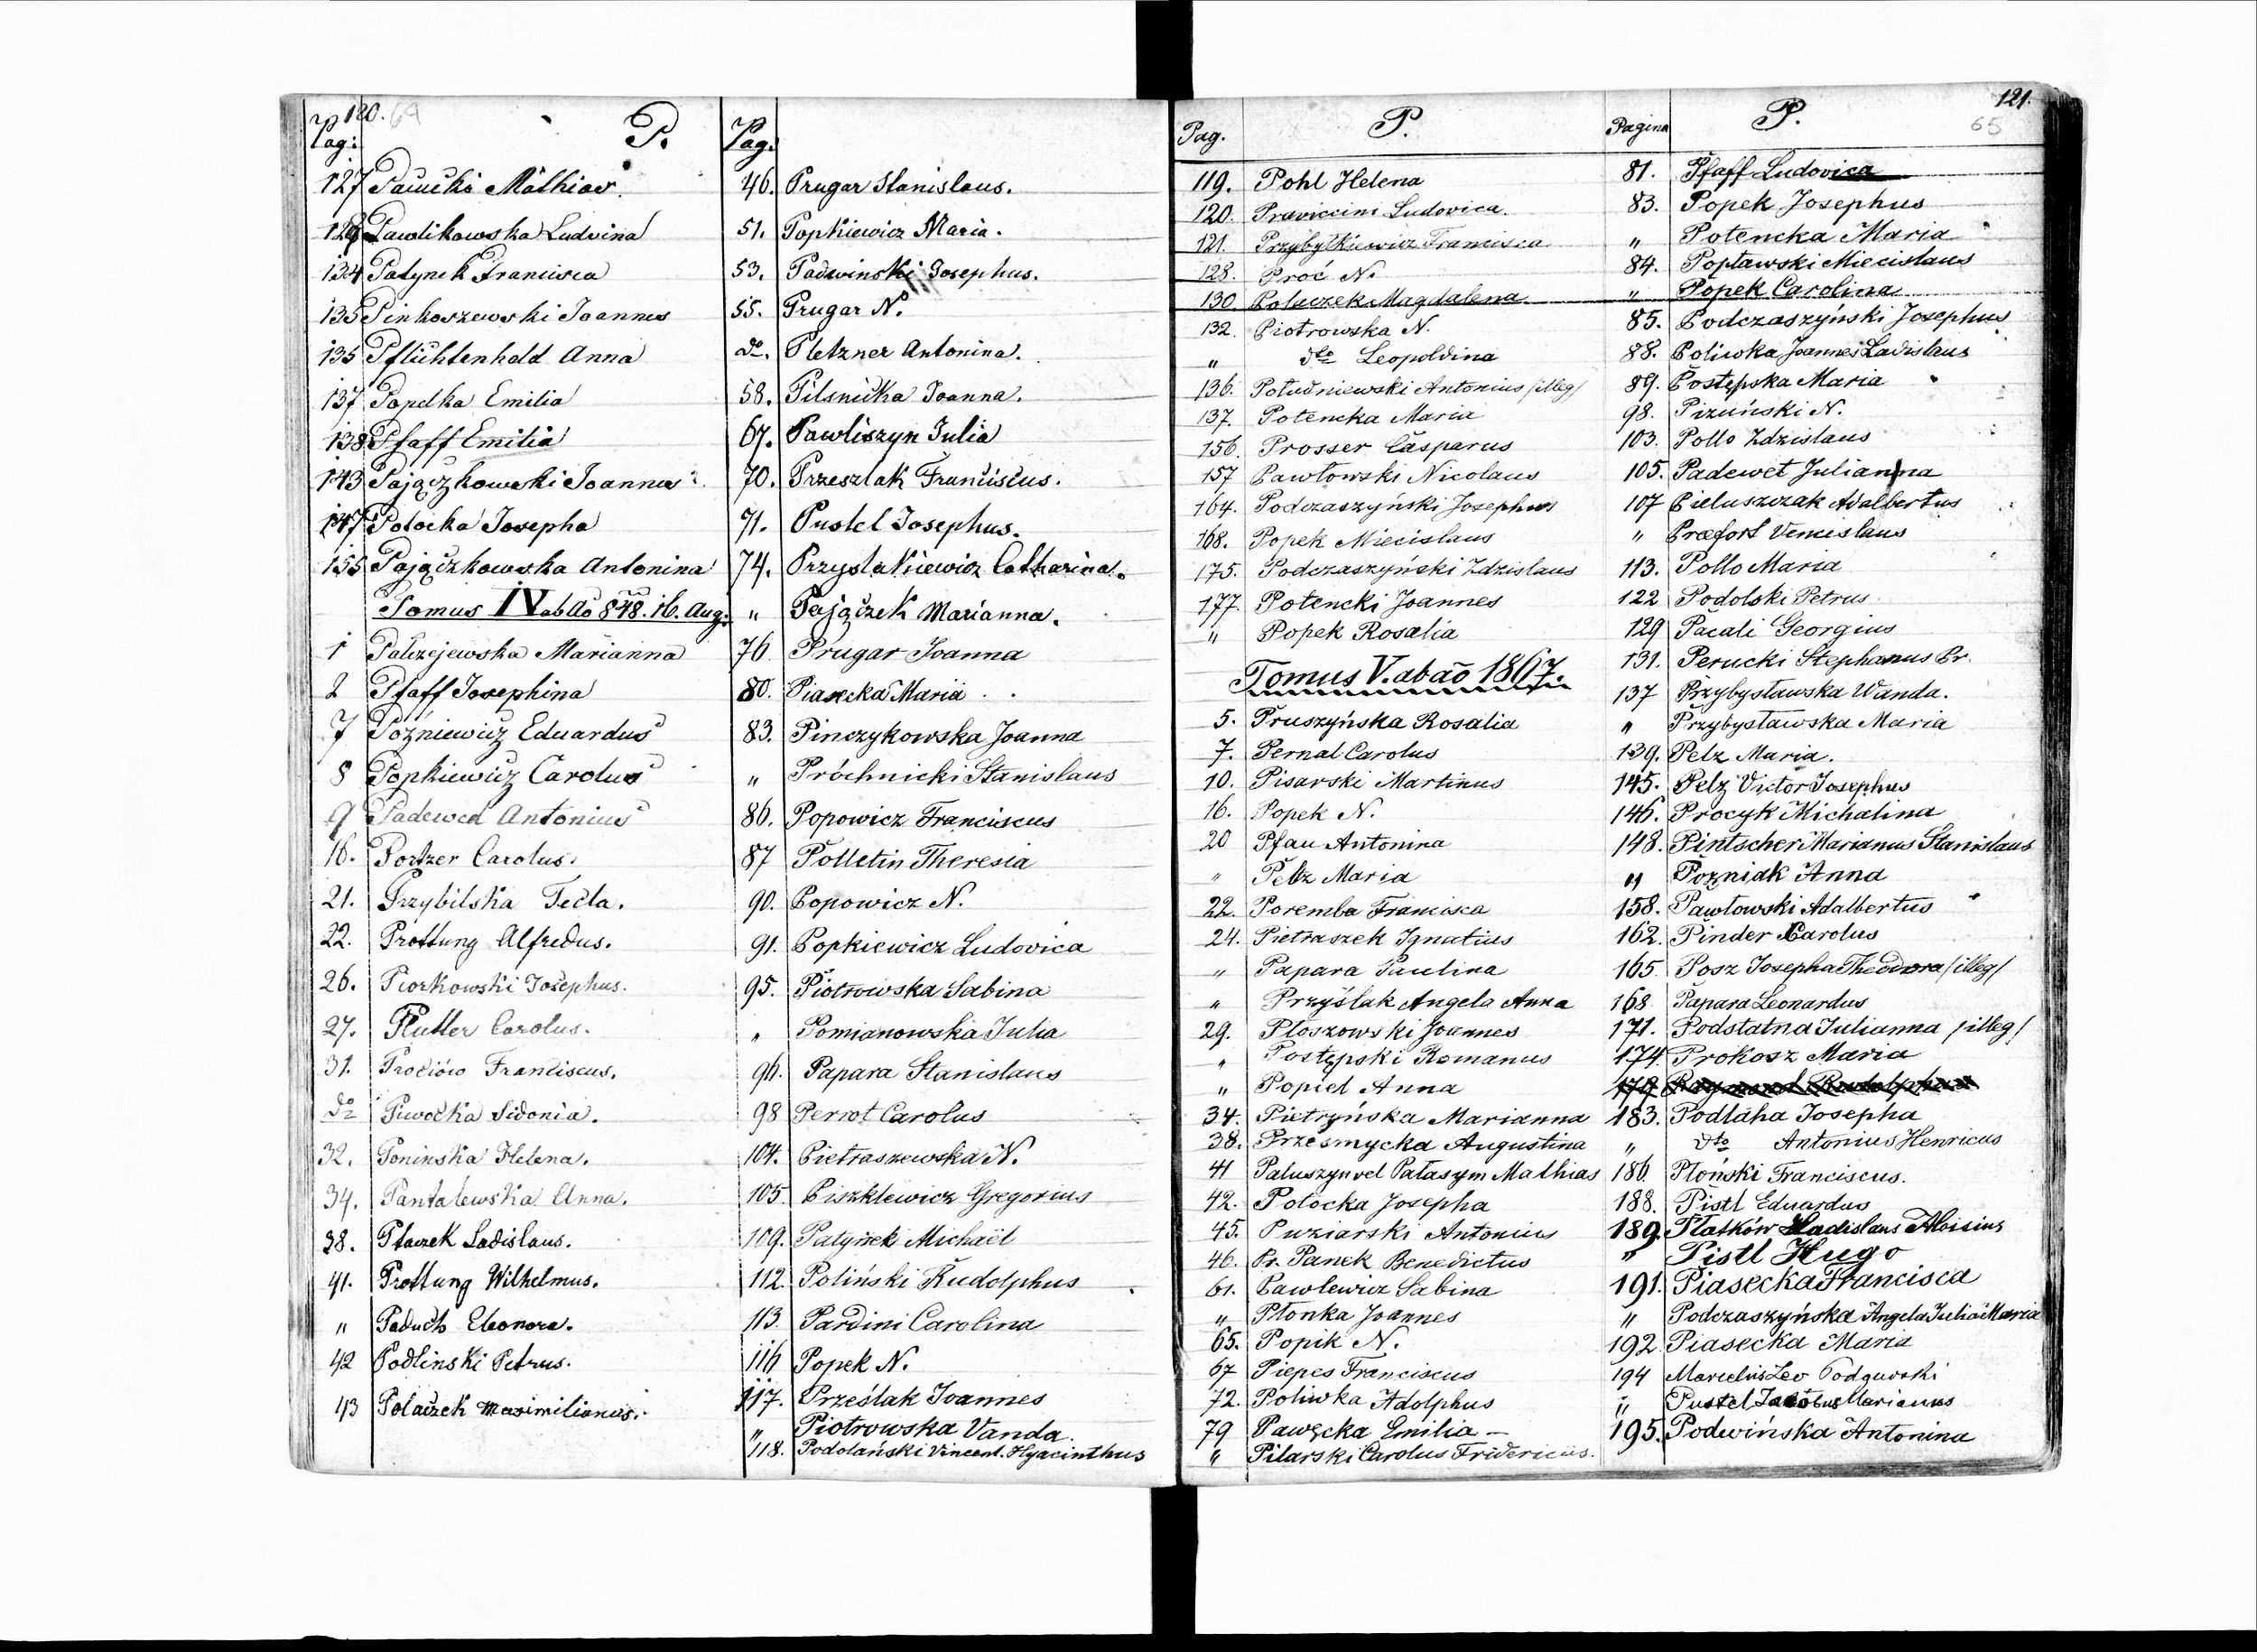 120. 64
P.
Pag:
127 Pawcki Mathias
128 Pawlikowska Ludvina
134 Patynek Francisca
135 Pinkoszewski Joannes
135 Pflichtenheld Anna
137 Popelka Emilia
138 Pfaff Emilia
143 Pajączkowski Joannes
147 Potocka Josepha
155 Pajączkowska Antonina
Tomus IV ab Ao 848. 16. Aug.
1 Palizejewska Marianna
2 Pfaff Josephina
7 Poźniewicz Eduardus
8 Popkiewicz Carolus
9 Padewed Antonius
16. Portzer Carolus.
21. Przybilska Tecla.
22. Prottung Alfredus.
26. Piorkowski Josephus.
27. Plutter Carolus.
31. Prociów Franciscus.
do Piwocka Sidonia.
32. Poninska Helena.
34. Pantalewska Anna.
38. Ptaczek Ladislaus.
41. Prottung Wilhelmus.
" Paduch Eleonora.
42 Podlinski Petrus.
43 Polaczek Maximilianus.
Pag.
46. Prugar Stanislaus.
51. Popkiewicz Maria.
53. Padwinski Josephus.
55. Prugar N.
do. Pletzner Antonina.
58. Pilsnicka Joanna.
67. Pawliszyn Julia
70. Przeszlak Franciscus.
71. Pustel Josephus.
74. Przystakiewicz Catharina.
" Pajączek Marianna.
76 Prugar Joanna
80. Piasecka Maria
83. Pinczykowska Joanna
" Próchnicki Stanislaus
86. Popowicz Franciscus
87 Polletin Theresia
90. Popowicz N.
91. Popkiewicz Ludovica
95. Piotrowska Sabina
" Pomianowska Julia
96. Papara Stanislaus
98 Perrot Carolus
104. Pietraszewska N.
105. Piszklewicz Gregorius
109. Patynek Michaël
112. Poliński Rudolphus
113. Pardini Carolina
116 Popek N.
117. Prześlak Joannes
" Piotrowska Vanda.
118. Podolański Vincent. Hyacinthus
P.
Pag.
119. Pohl Helena
120. Praviccini Ludovica.
121. Przybytkiewicz Francisca
128. Proć N.
130. Poluczek Magdalena
132. Piotrowska N.
" dto Leopoldina
136. Południewski Antonius /illeg/
137. Potencka Maria
156. Prosser Casparus
157 Pawłowski Nicolaus
164. Podczaszyński Josephus
168. Popek Miecislaus
175. Podczaszyński Zdzislaus
177. Potencki Joannes
" Popek Rosalia
Tomus V. ab ao 1867.
5. Pruszyńska Rosalia
7. Pernal Carolus
10. Pisarski Martinus
16. Popek N.
20 Pfau Antonina
" Pelz Maria
22. Poremba Francisca
24. Pietraszek Ignatius
" Papara Paulina
" Przyślak Angela Anna
29. Płoszowski Joannes
" Postępski Romanus
" Popiel Anna
34. Pietryńska Marianna
38. Przesmycka Augustina
41 Paluszyn vel Pałasym Mathias
42. Potocka Josepha
45. Puziarski Antonius
46. Pr. Panek Benedictus
61. Pawlewicz Sabina
" Płonka Joannes
65. Popik N.
67 Piepes Franciscus
72. Poliwka Adolphus
79 Pawęcka Emilia –
" Pilarski Carolus Fridericus.
121.
65
P.
Pagina
81. Pfaff Ludovica
83. Popek Josephus
" Potencka Maria
84. Popławski Miecislaus
" Popek Carolina
85. Podczaszyński Josephus
88. Poliwka Joannes Ladislaus
89. Postępska Maria
98. Pizuński N.
103. Pollo Zdzislaus
105. Padewet Julianna
107 Pieluszczak Adalbertus
" Praefort Venceslaus
113. Pollo Maria
122 Podolski Petrus
129 Pacali Georgius
131. Perucki Stephanus Pr.
137 Przybysławska Wanda.
" Przybysławska Maria
139. Pelz Maria.
145. Pelz Victor Josephus
146. Procyk Michalina
148. Pintscher Marianus Stanislaus
" Poźniak Anna
158. Pawłowski Adalbertus
162. Pinder Carolus
165. Posz Josepha Theodora /illeg/
168 Papara Leonardus
171. Podstatna Julianna /illeg/
174 Prokosz Maria
183. Podlaha Josepha
" dto Antonius Henricus
186. Płoński Franciscus.
188. Pistl Eduardus
189. Płatków Ladislaus Aloisius
" Pistl Hugo
191. Piasecka Francisca
" Podczaszyńska Angela Julia Maria
192 Piasecka Maria
194 Marcelus Leo Podgurski
" Pustel Jacobus Marianus
195. Podwińska Antonina